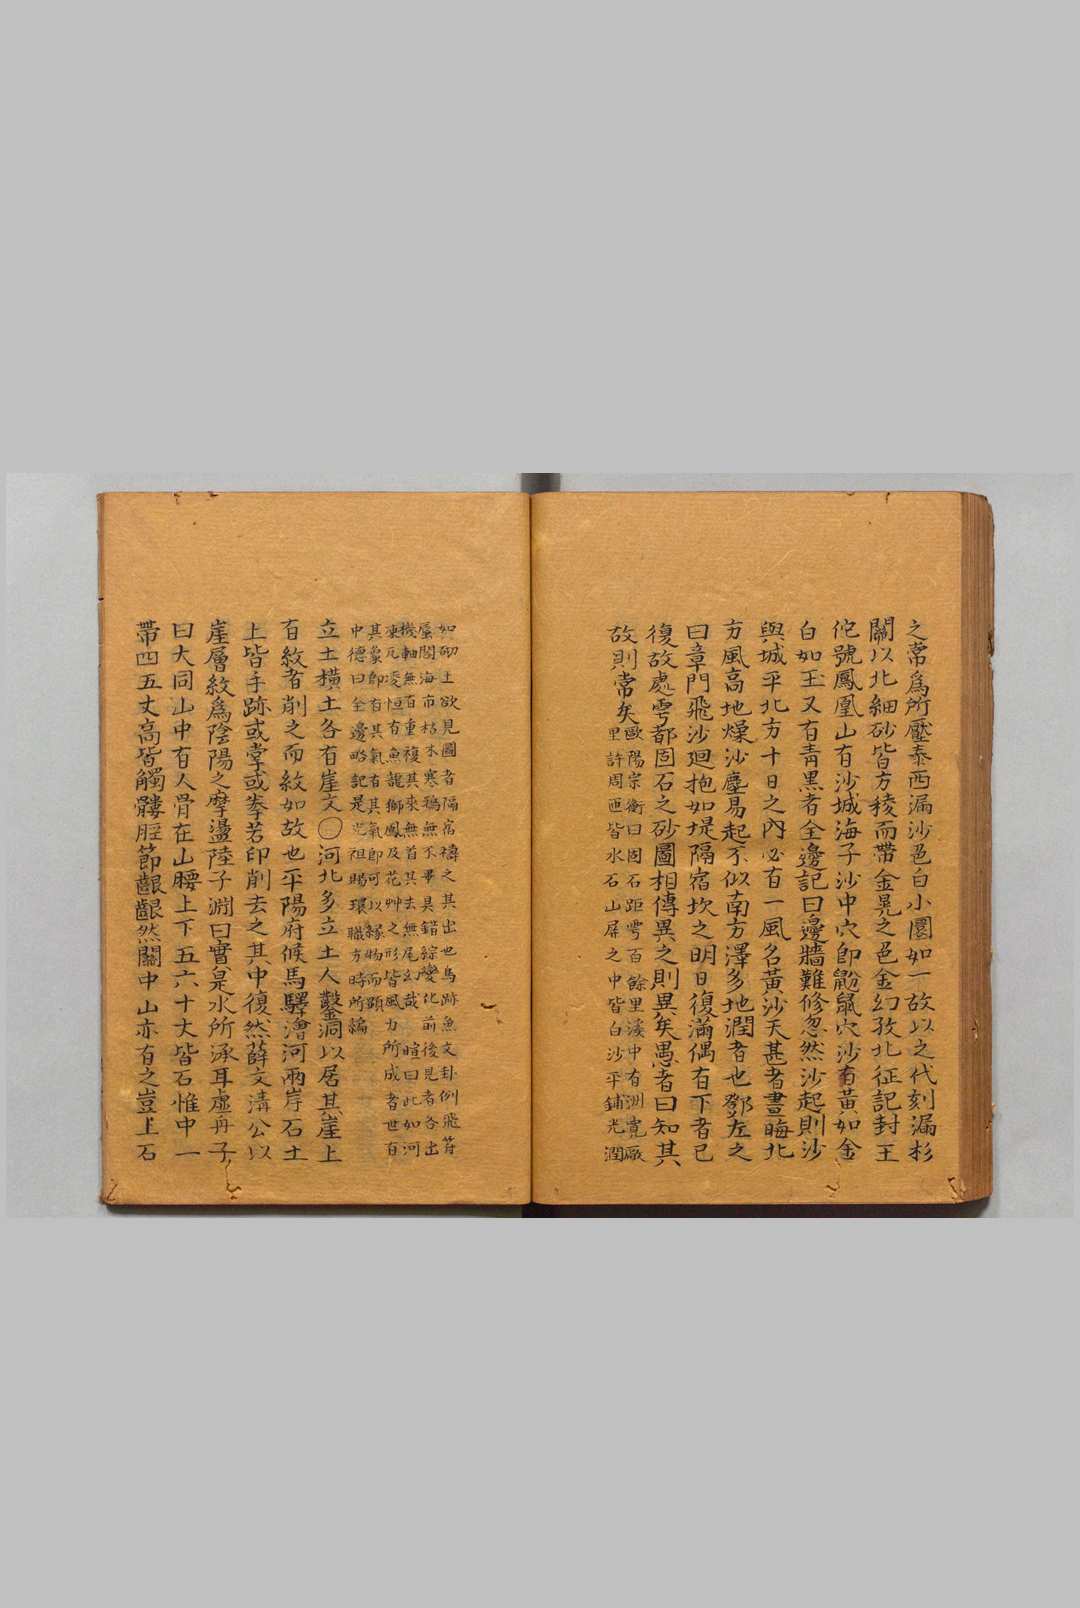 之常爲所壓泰西漏沙色白小圜如一故以之代刻漏杉
關以北細砂皆方稜而帶金晃之色金幻孜北征記封王
佗號鳳凰山有沙城海子沙中穴卽鼢鼠穴沙有黃如金
白如玉又有青黑者全邊記曰邊牆難修忽然沙起則沙
與城平北方十日之內必有一風名黃沙天甚者晝晦北
方風高地燥沙塵易起不似南方澤多地潤者也鄧左之
曰章門飛沙迴抱如堤隔宿坎之明日復滿偶有下者已
復故處雩都固石之砂圖相傳異之則異矣愚者曰知其
故則常矣歐陽宗衡曰固石距雩百餘里溪中有洲寬厰
里許周匝皆水石山屏之中皆白沙平鋪光潤
如砌土欲見圖者隔宿禱之其出也鳥跡魚文卦例飛符
蜃閣海市枯木寒鴉無不畢具錯綜變化前後見者各出
機軸無有重複其來無首其去無尾幻哉 暄曰此如河
凍瓦凌恒有魚龍獅鳳及花艸之形皆風力所成者世有
其象卽有其氣有其氣卽可以緣物而顯
中德曰全邊略記是 祖賜環職方時所編
立土橫土各有崖文〇河北多立土人鑿洞以居其崖上
有紋者削之而紋如故也平陽府候馬驛澮河兩岸石土
上皆手跡或掌或拳若印削去之其中復然薛文清公以
崖層紋爲陰陽之摩盪陸子淵曰實是水所漱耳虛舟子
曰大同山中有人骨在山腰上下五六十丈皆石惟中一
帶四五丈高皆觸髏脛節齦齦然關中山亦有之豈上石